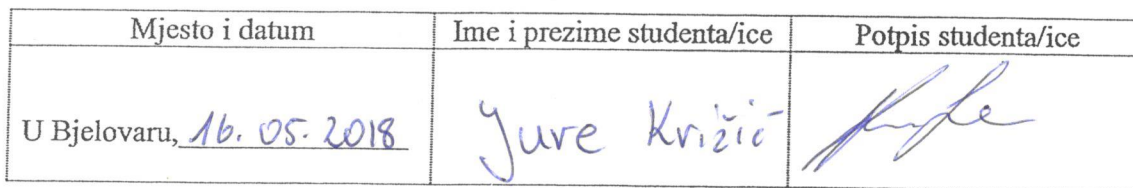 Mjesto i datum
Ime i prezime studenta/ice
Potpis studenta/ice
U Bjelovaru, 16. 05. 2018
Jure Križić